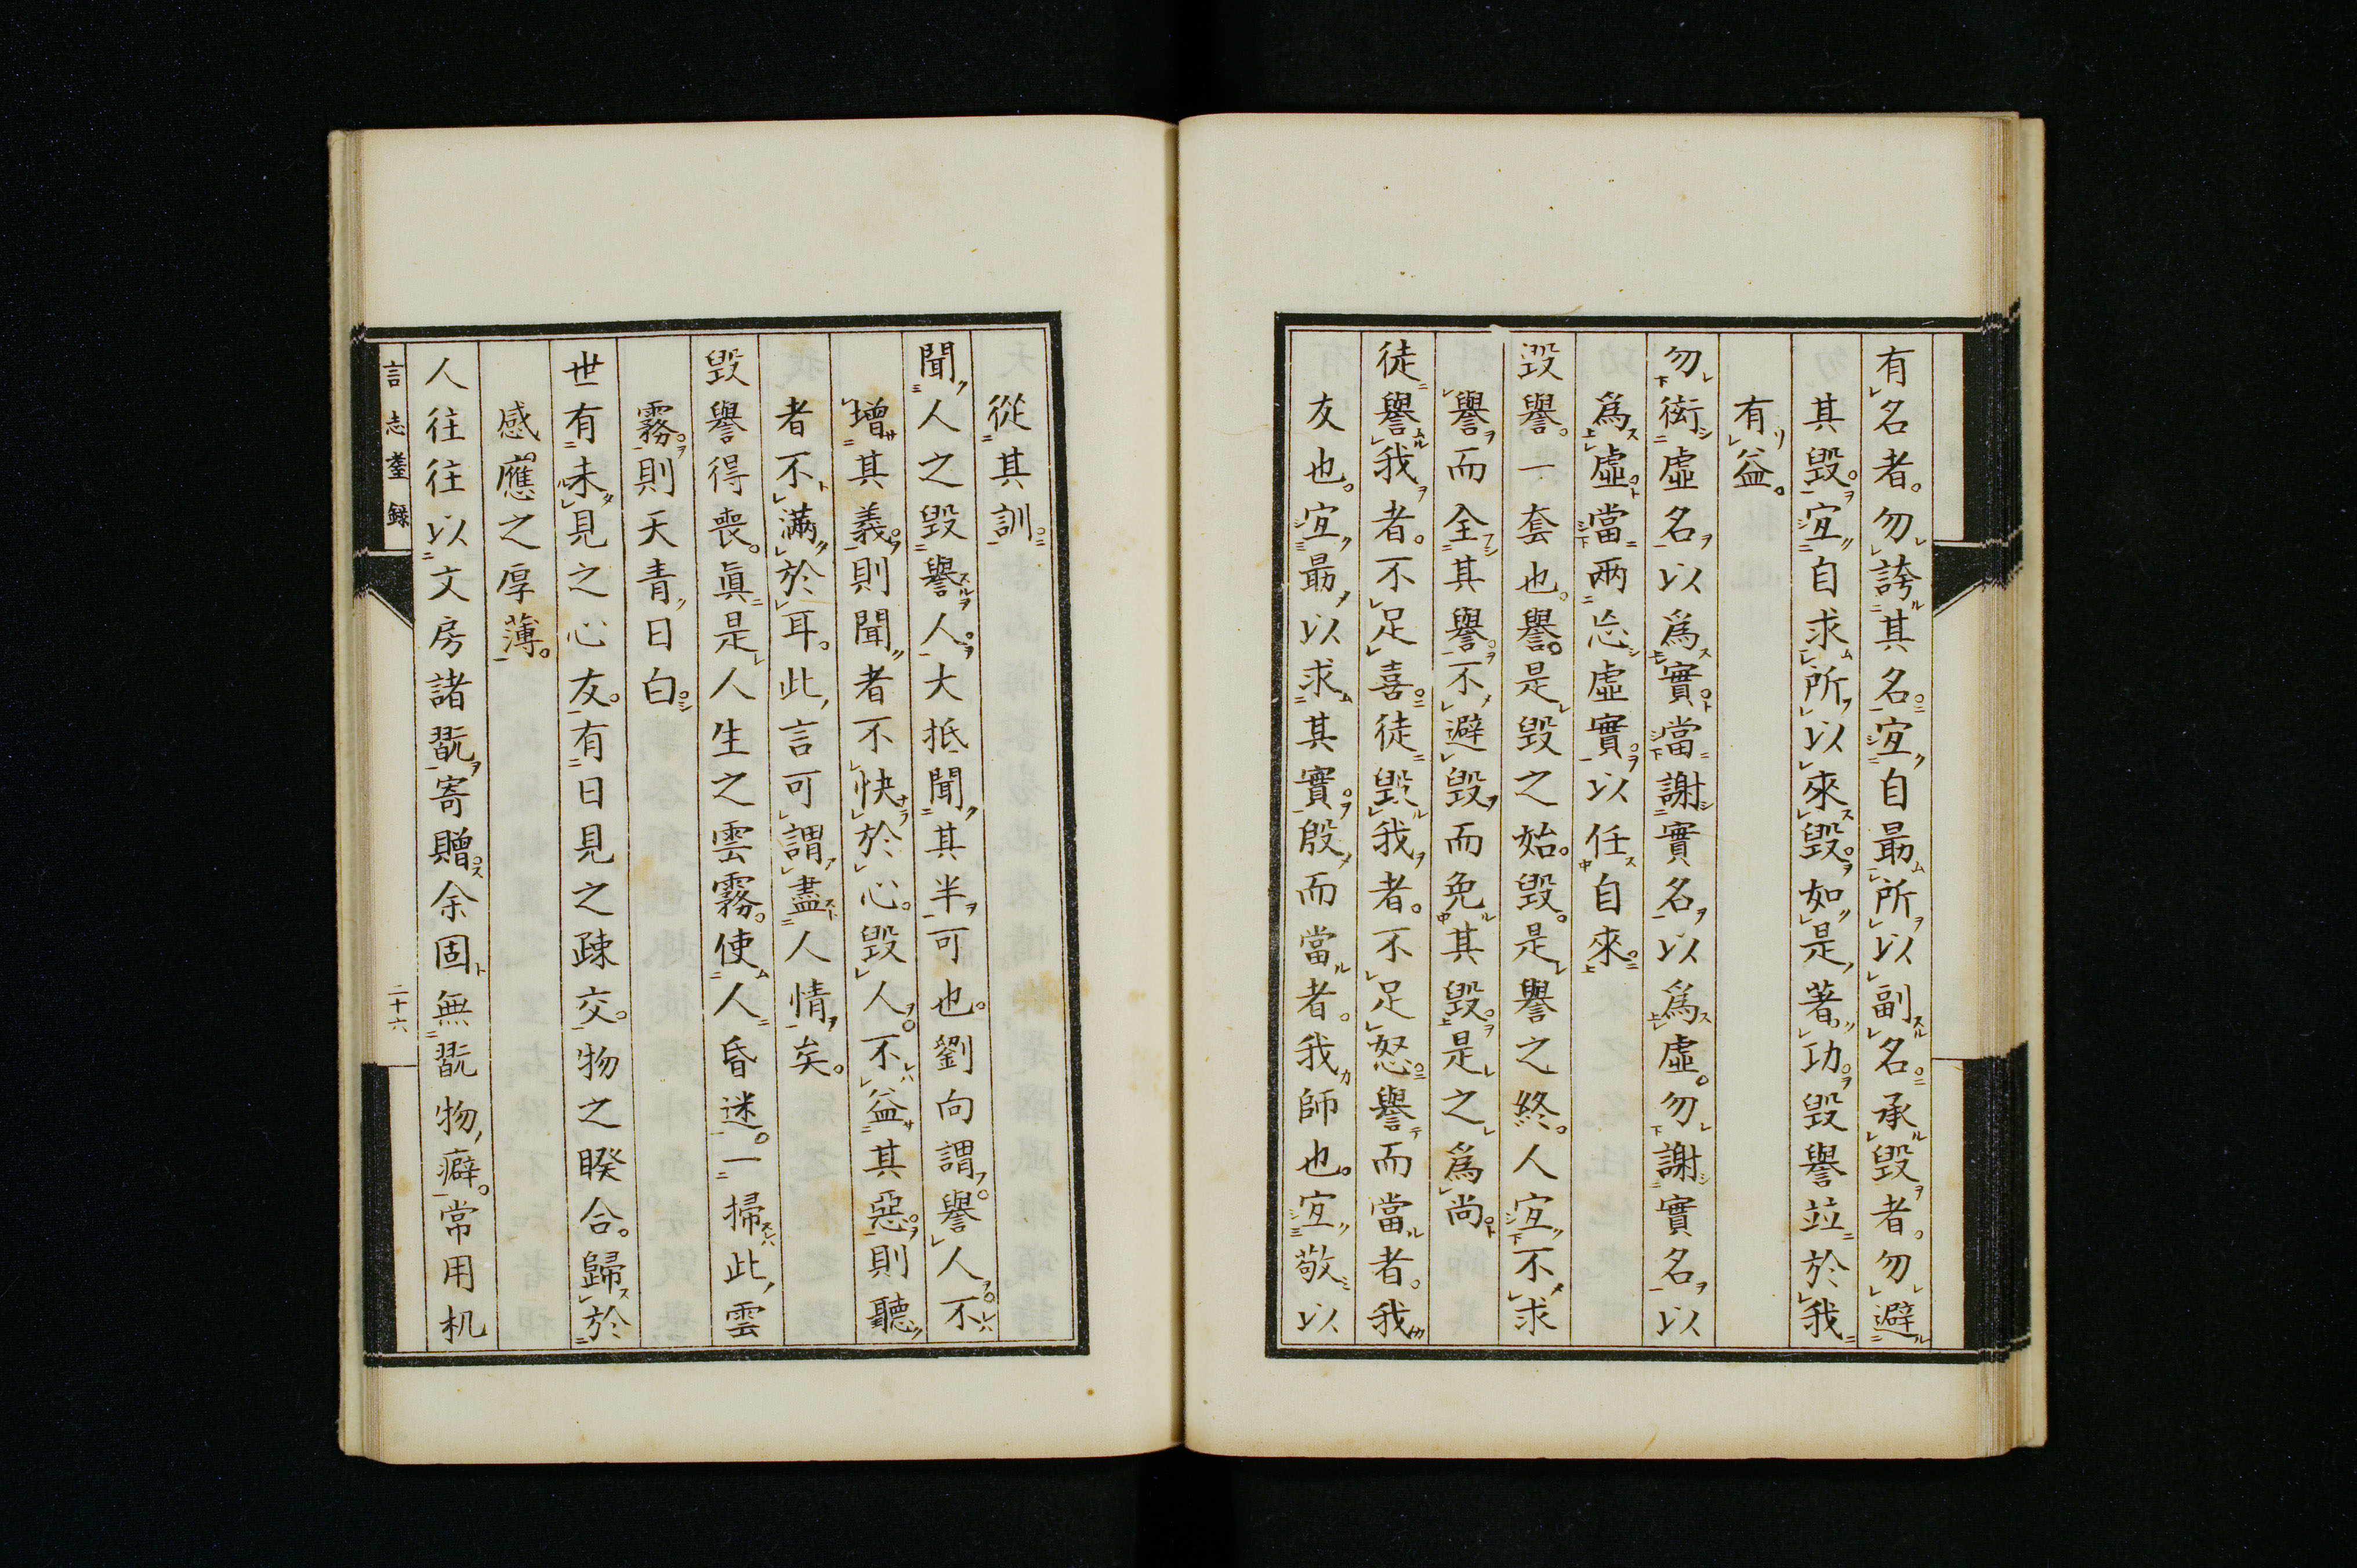 有名者。勿誇其名。宜自朂所以副名。承毀者。勿避
其毀。宜自求所以來毀。如是著功。毀譽竝於我
有益。
勿衒虛名以爲實。當謝實名以爲虛。勿謝實名以
爲虛。當兩忘虛實。以任自來。
毀譽。一套也。譽。是毀之始。毀。是譽之終。人宜不求
譽而全其譽。不避毀而免其毀。是之爲尚。
徒譽我者。不足喜。徒毀我者。不足怒。譽而當者。我
友也。宜朂以求其實。毀而當者。我師也。宜敬以
從其訓。
聞人之毀譽人。大抵聞其半可也。劉向謂。譽人。不
增其義。則聞者不快於心。毀人。不益其惡。則聽
者不滿於耳。此言可謂盡人情矣。
毀譽得喪。眞是人生之雲霧。使人昏迷。一掃此雲
霧。則天青日白。
世有未見之心友。有日見之疎交。物之睽合。歸於
感應之厚薄。
人往往以文房諸翫寄贈。余固無翫物癖。常用机
言志耋錄
二十六